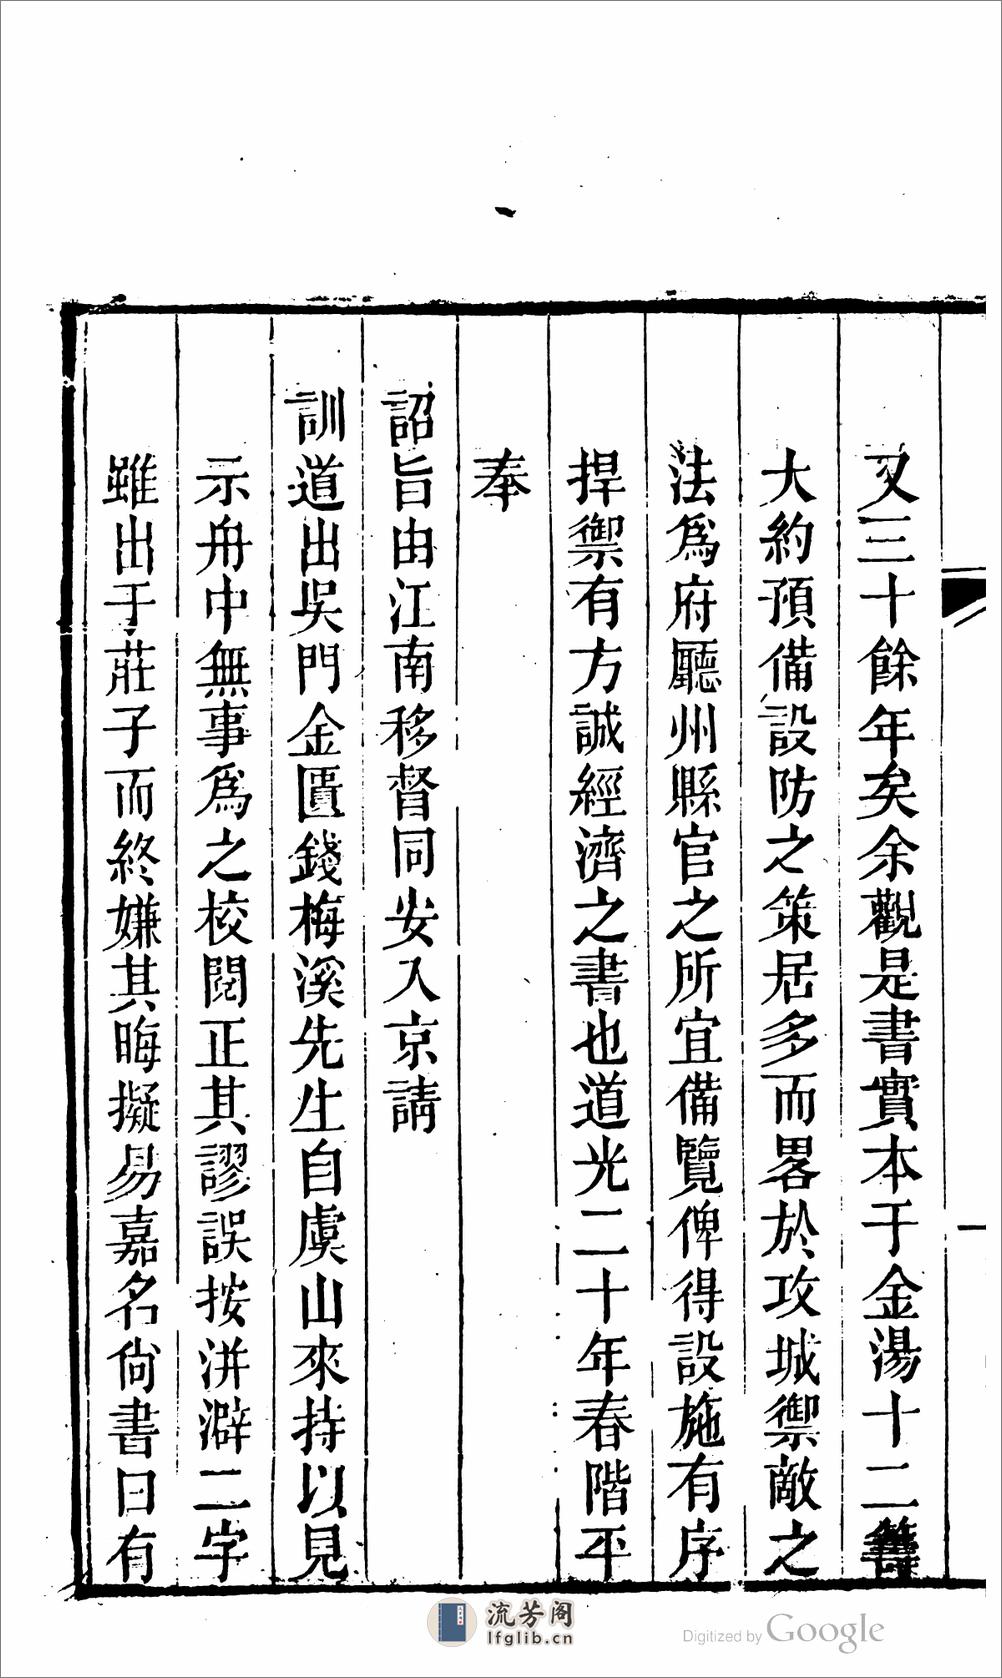 又三十餘年矣余觀是書實本于金湯十二籌
大約預備設防之策居多而畧於攻城禦敵之
法爲府廳州縣官之所宜備覽俾得設施有序
捍禦有方誠經濟之書也道光二十年春階平
奉
詔旨由江南移督同安入京請
訓道出吳門金匱錢梅溪先生自虞山來持以見
示舟中無事爲之校閱正其謬誤按洴澼二字
雖出于莊子而終嫌其晦擬易嘉名尙書曰有
流芳阁
lfglib.cn
Digitized by Google